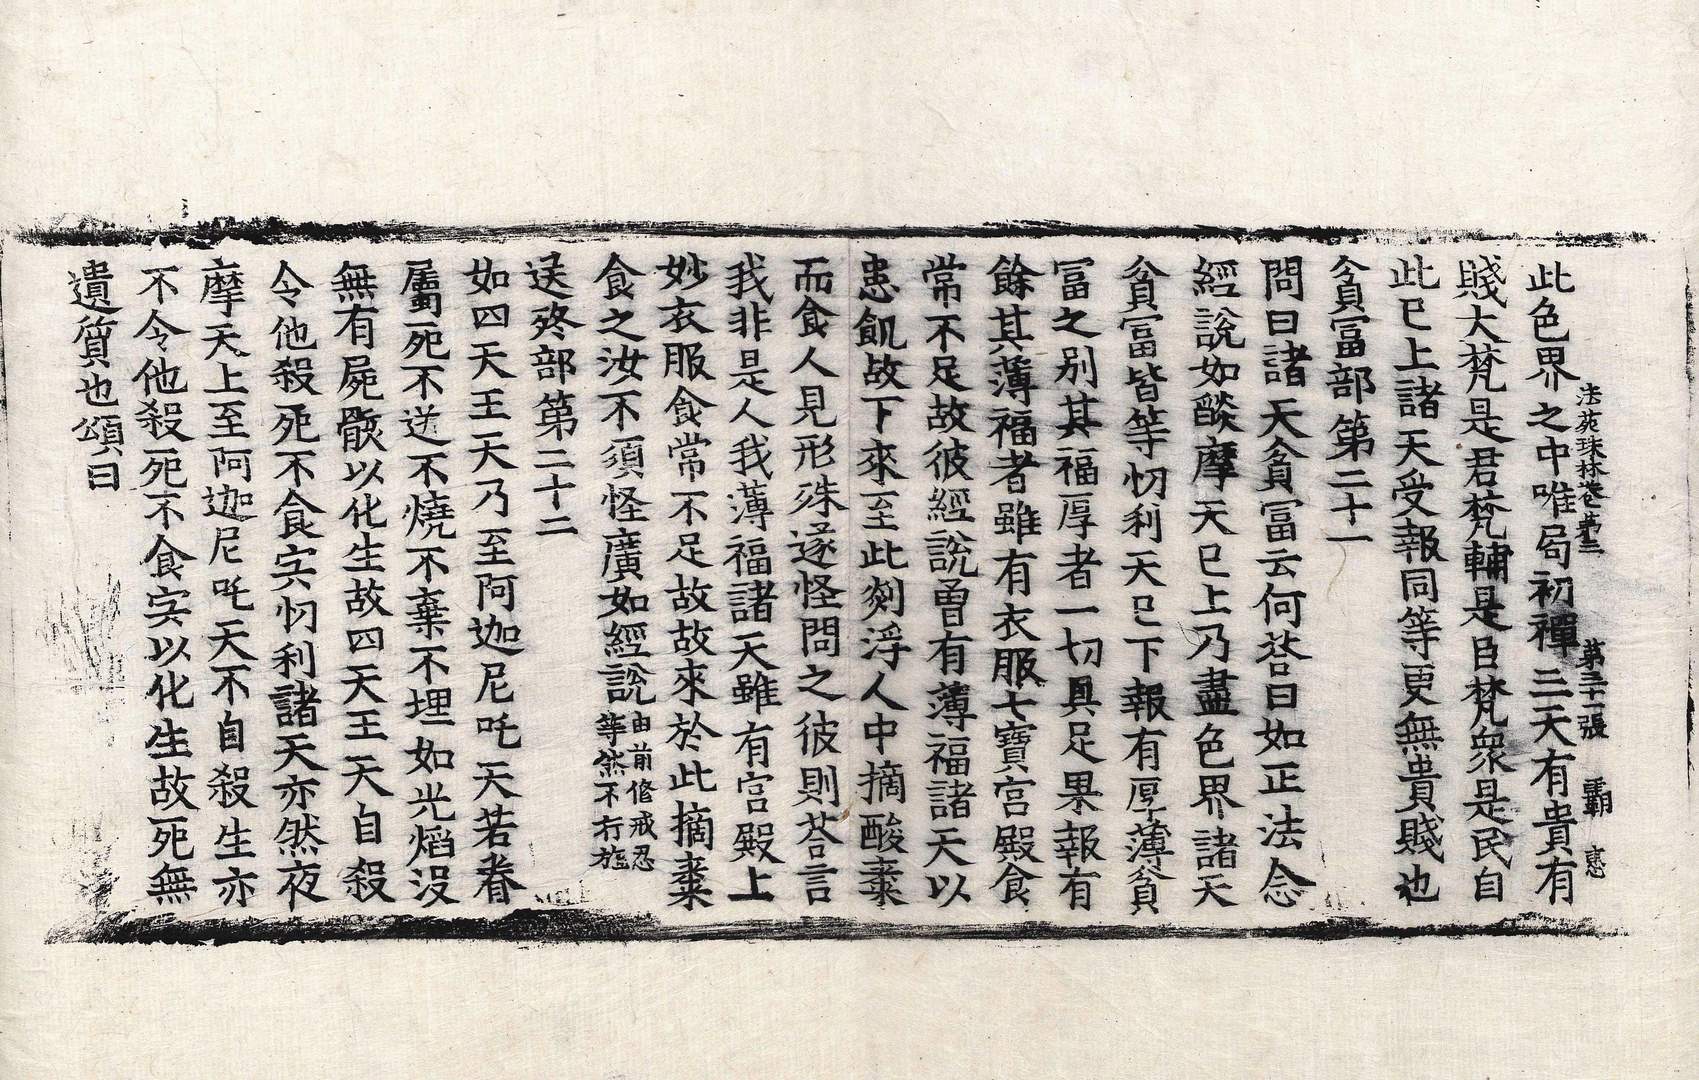 法苑珠林卷第三 第三十一張 覇
此色界之中唯局初禪三天有貴有
賤大梵是君梵輔是臣梵衆是民自
此已上諸天受報同等更無貴賤也
貧富部第二十一
問曰諸天貧富云何荅曰如正法念
經說如燄摩天已上乃盡色界諸天
貧富皆等忉利天已下報有厚薄貧
富之別其福厚者一切具足果報有
餘其薄福者雖有衣服七寶宮殿食
常不足故彼經說曾有薄福諸天以
患飢故下來至此剡浮人中摘酸棗
而食人見形殊遂怪問之彼則荅言
我非是人我薄福諸天雖有宮殿上
妙衣服食常不足故故來於此摘棗
食之汝不須怪廣如經說由前修戒忍等然不行施
送終部第二十二
如四天王天乃至阿迦尼吒天若眷
屬死不送不燒不棄不埋如光焰沒
無有屍骸以化生故四天王天自殺
令他殺死不食宍忉利諸天亦然夜
摩天上至阿迦尼吒天不自殺生亦
不令他殺死不食宍以化生故死無
遺質也頌曰